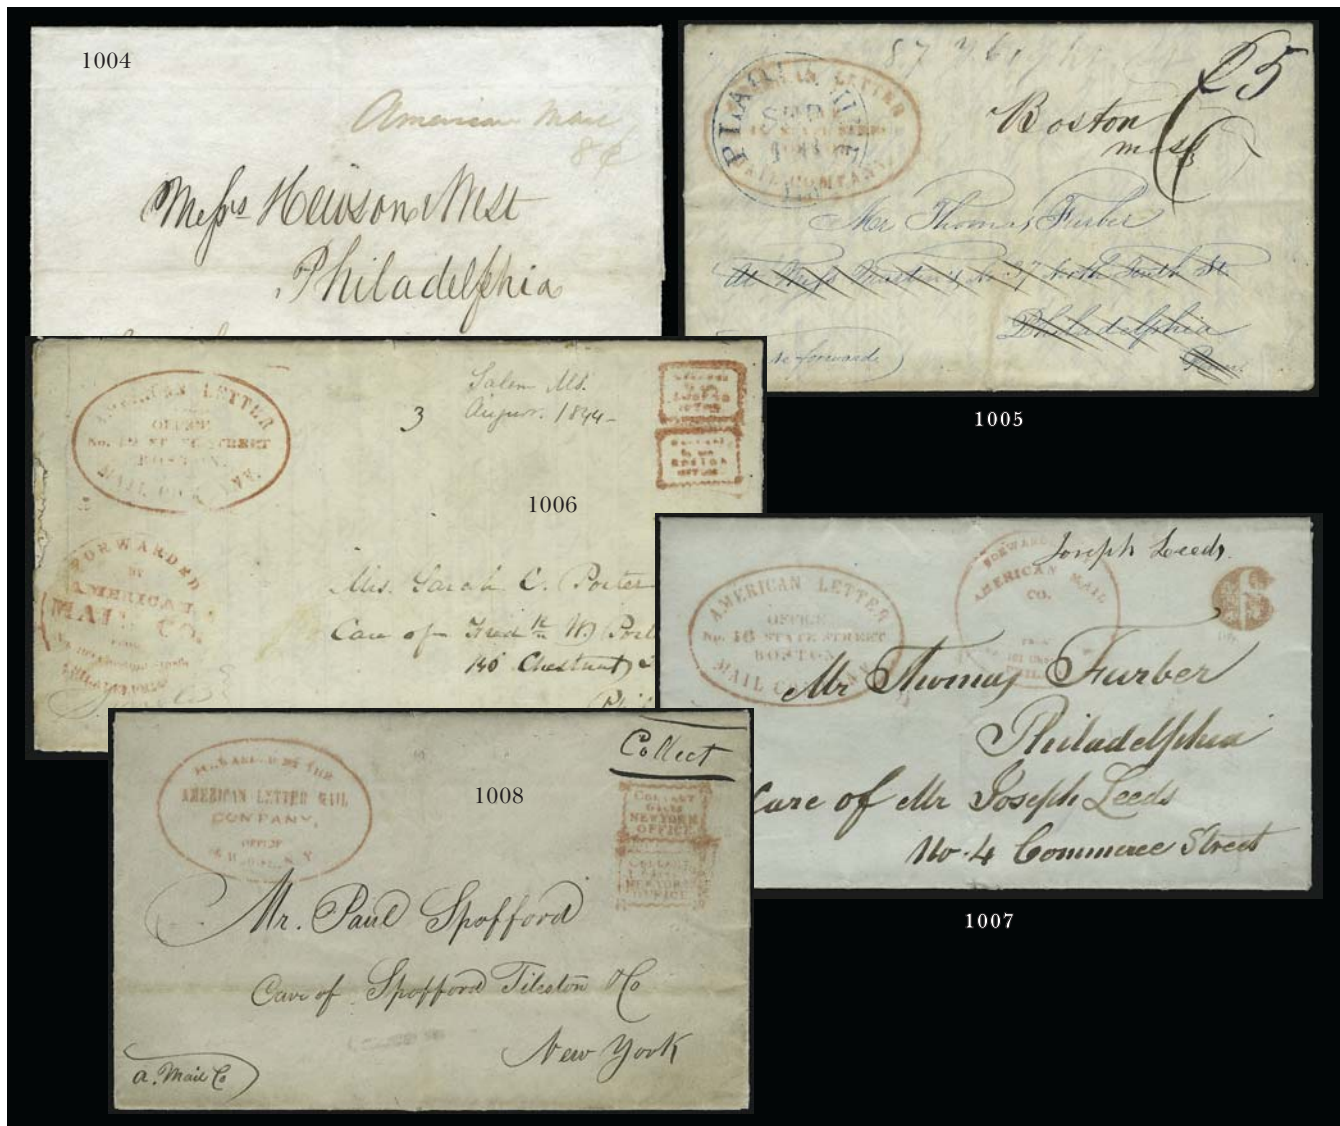 1004
American Mail
8¢
Messrs Hewson & West
Philadelphia
AMERICAN LETTER
MAIL COMPANY
PHILADEL
SEP
25
6
Boston
Mass
Mr Thomas Furber
At Miss Martin's, No. 37 North Tenth St.
Philadelphia
Penn
be forwarded
1005
AMERICAN LETTER
OFFICE
No. STATE STREET
BOSTON.
MAIL COMPANY.
3
Salem Ms.
August. 1844
BOSTON
OFFICE
1006
FORWARDED
BY
AMERICAN
MAIL CO.
FROM
PHILADELPHIA
Mrs. Sarah C. Porter
Care of Fred W. Port
Chestnut
Phil
AMERICAN LETTER
OFFICE
No. 16 STATE STREET
BOSTON
MAIL COMPANY
FORWARDED
AMERICAN MAIL
CO.
FROM
Joseph Leeds.
6
Mr Thomas Furber
Philadelphia
Care of Mr Joseph Leeds
No. 4 Commerce Street
1007
FORWARDED BY THE
AMERICAN LETTER MAIL
COMPANY,
OFFICE
N.Y.
1008
Collect
COLLECT
6 CENTS
NEW YORK
OFFICE
COLLECT
NEW YORK
OFFICE
Mr. Paul Spofford
Care of Spofford Tileston & Co
New York
a. Mail Co